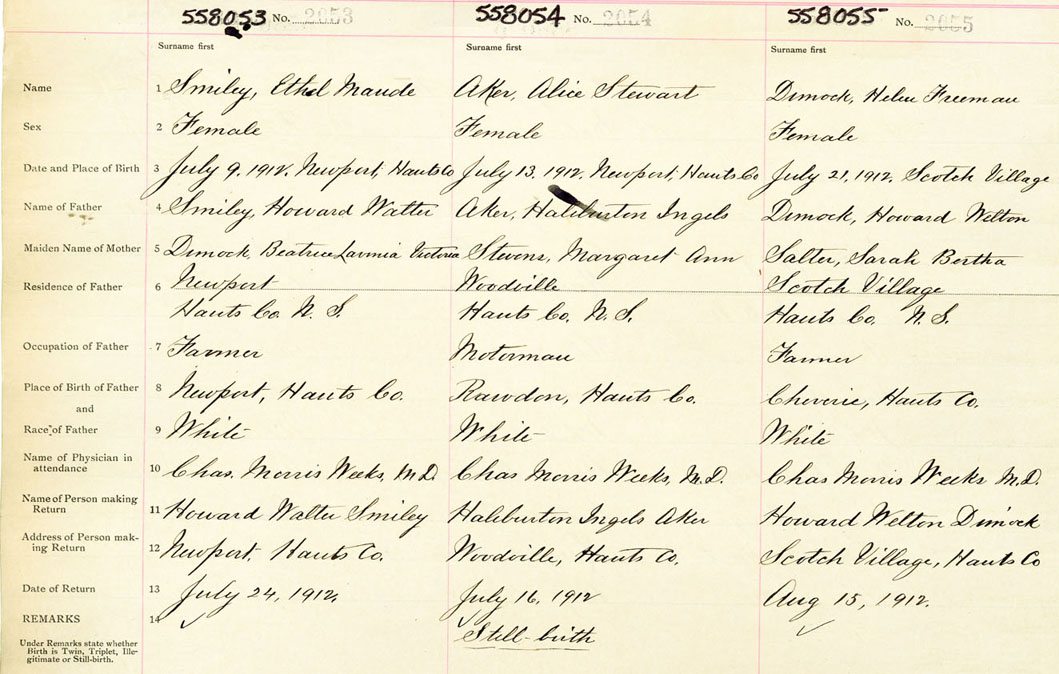 558053 No. 2053 558054 No. 2054 558055 No. 2055
Surname first Surname first Surname first
Name 1 Smiley, Ethel Maude Aker, Alice Stewart Dimock, Helen Freeman
Sex 2 Female Female Female
Date and Place of Birth 3 July 9, 1912. Newport, Hants Co July 13, 1912. Newport, Hants Co July 21, 1912. Scotch Village
Name of Father 4 Smiley, Howard Walter Aker, Haliburton Ingels Dimock, Howard Welton
Maiden Name of Mother 5 Dimock, Beatrice Lavinia Victoria Stevens, Margaret Ann Salter, Sarah Bertha
Residence of Father 6 Newport Woodville Scotch Village
Hants Co. N. S. Hants Co. N. S. Hants Co. N. S.
Occupation of Father 7 Farmer Motorman Farmer
Place of Birth of Father 8 Newport, Hants Co. Rawdon, Hants Co. Cheverie, Hants Co.
and
Race of Father 9 White White White
Name of Physician in
attendance 10 Chas. Morris Weeks, M.D. Chas Morris Weeks, M.D. Chas Morris Weeks M.D.
Name of Person making
Return 11 Howard Walter Smiley Haliburton Ingels Aker Howard Welton Dimock
Address of Person mak-
ing Return 12 Newport, Hants Co. Woodville, Hants Co. Scotch Village, Hants Co
Date of Return 13 July 24, 1912. July 16, 1912 Aug 15, 1912.
REMARKS 14 Still-birth
Under Remarks state whether
Birth is Twin, Triplet, Ille-
gitimate or Still-birth.